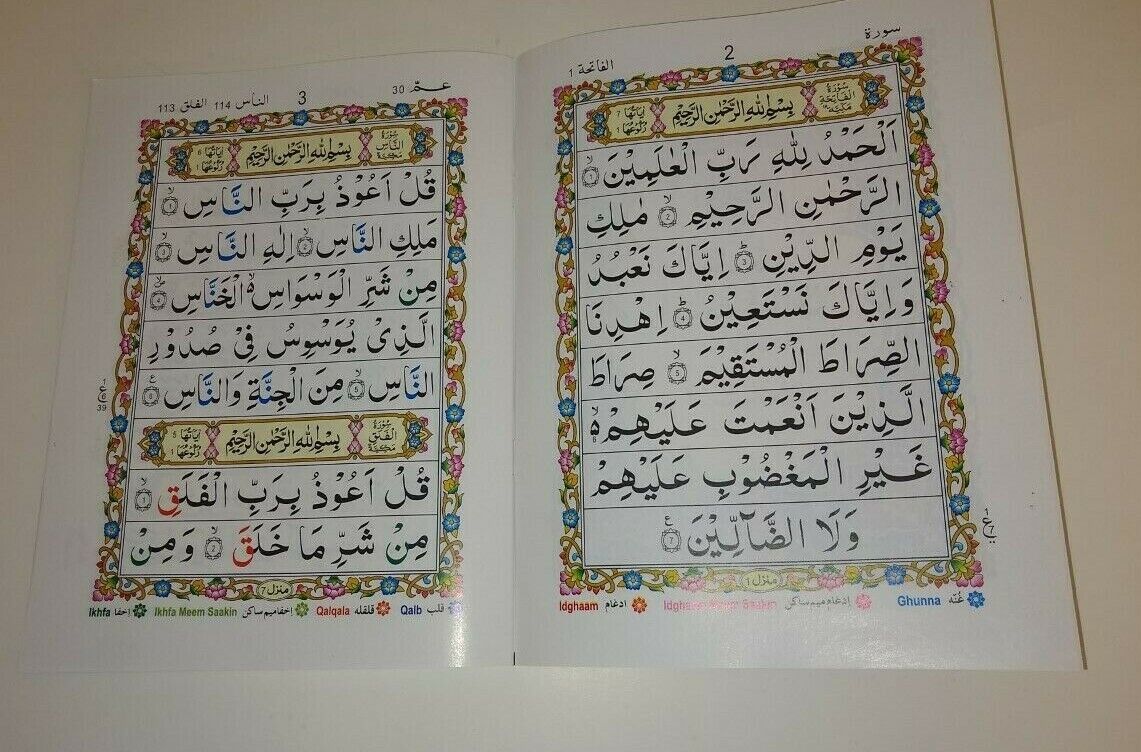 سورة
2
الفاتحة 1
سُوْرَةُ الْفَاتِحَةِ مَكِّيَّةٌ
بِسْمِ اللهِ الرَّحْمٰنِ الرَّحِيْمِ
اٰيَاتُهَا 7 رُكُوْعُهَا 1
اَلْحَمْدُ لِلّٰهِ رَبِّ الْعٰلَمِيْنَ ۙ 1
الرَّحْمٰنِ الرَّحِيْمِ ۙ 2 مٰلِكِ
يَوْمِ الدِّيْنِ ؕ 3 اِيَّاكَ نَعْبُدُ
وَاِيَّاكَ نَسْتَعِيْنُ ؕ 4 اِهْدِنَا
الصِّرَاطَ الْمُسْتَقِيْمَ ۙ 5 صِرَاطَ
الَّذِيْنَ اَنْعَمْتَ عَلَيْهِمْ ۙ 6
غَيْرِ الْمَغْضُوْبِ عَلَيْهِمْ
وَلَا الضَّآلِّيْنَ 7 ع
1 ع 7
منزل 1
غُنّه Ghunna
إدغام ميم ساكن Idghaam Meem Saakin
ادغام Idghaam
عمّ 30
3
الناس 114 الفلق 113
سُوْرَةُ النَّاسِ مَكِّيَّةٌ
بِسْمِ اللهِ الرَّحْمٰنِ الرَّحِيْمِ
اٰيَاتُهَا 6 رُكُوْعُهَا 1
قُلْ اَعُوْذُ بِرَبِّ النَّاسِ ۙ 1
مَلِكِ النَّاسِ ۙ 2 اِلٰهِ النَّاسِ ۙ 3
مِنْ شَرِّ الْوَسْوَاسِ ۙ الْخَنَّاسِ 4
الَّذِىْ يُوَسْوِسُ فِىْ صُدُوْرِ
النَّاسِ ۙ 5 مِنَ الْجِنَّةِ وَالنَّاسِ 6 ع
1 ع 6 39
سُوْرَةُ الْفَلَقِ مَكِّيَّةٌ
بِسْمِ اللهِ الرَّحْمٰنِ الرَّحِيْمِ
اٰيَاتُهَا 5 رُكُوْعُهَا 1
قُلْ اَعُوْذُ بِرَبِّ الْفَلَقِ ۙ 1
مِنْ شَرِّ مَا خَلَقَ ۙ 2 وَمِنْ
منزل 7
قلب Qalb
قلقله Qalqala
إخفا ميم ساكن Ikhfa Meem Saakin
إخفا Ikhfa